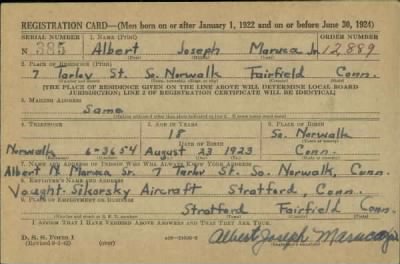 REGISTRATION CARD—(Men born on or after January 1, 1922 and on or before June 30, 1924)
SERIAL NUMBER 1. NAME (Print) ORDER NUMBER
N 385 Albert Joseph Maruca Jr. 12,889
(First) (Middle) (Last)
2. PLACE OF RESIDENCE (Print)
7 Tarlov St. So. Norwalk Fairfield Conn.
[THE PLACE OF RESIDENCE GIVEN ON THE LINE ABOVE WILL DETERMINE LOCAL BOARD
JURISDICTION; LINE 2 OF REGISTRATION CERTIFICATE WILL BE IDENTICAL]
3. MAILING ADDRESS
Same
4. TELEPHONE 5. AGE IN YEARS 6. PLACE OF BIRTH
18 So. Norwalk
DATE OF BIRTH
Norwalk 6-3654 August 23 1923 Conn.
7. NAME AND ADDRESS OF PERSON WHO WILL ALWAYS KNOW YOUR ADDRESS
Albert N. Maruca Sr. 7 Tarlov St. So. Norwalk, Conn.
8. EMPLOYER'S NAME AND ADDRESS
Vought-Sikorsky Aircraft Stratford, Conn.
9. PLACE OF EMPLOYMENT OR BUSINESS
Stratford Fairfield Conn.
I AFFIRM THAT I HAVE VERIFIED ABOVE ANSWERS AND THAT THEY ARE TRUE.
D. S. S. Form 1
(over) Albert Joseph Maruca Jr.